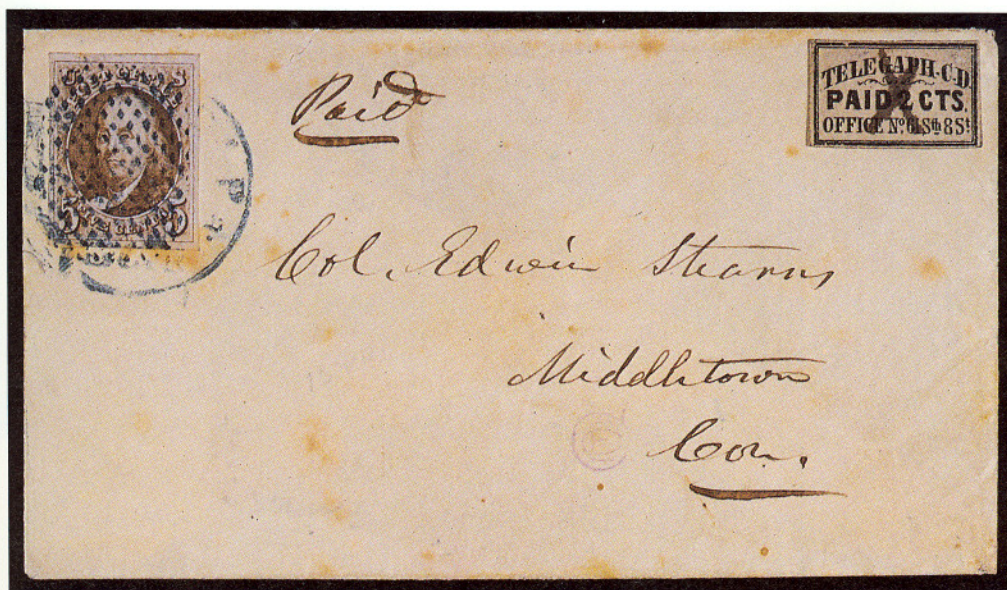 Paid
TELEGAPH-C.D.
PAID 2 CTS.
OFFICE Nº 6, Sth 8 St
Col. Edwin Stearns
Middletown
Con.